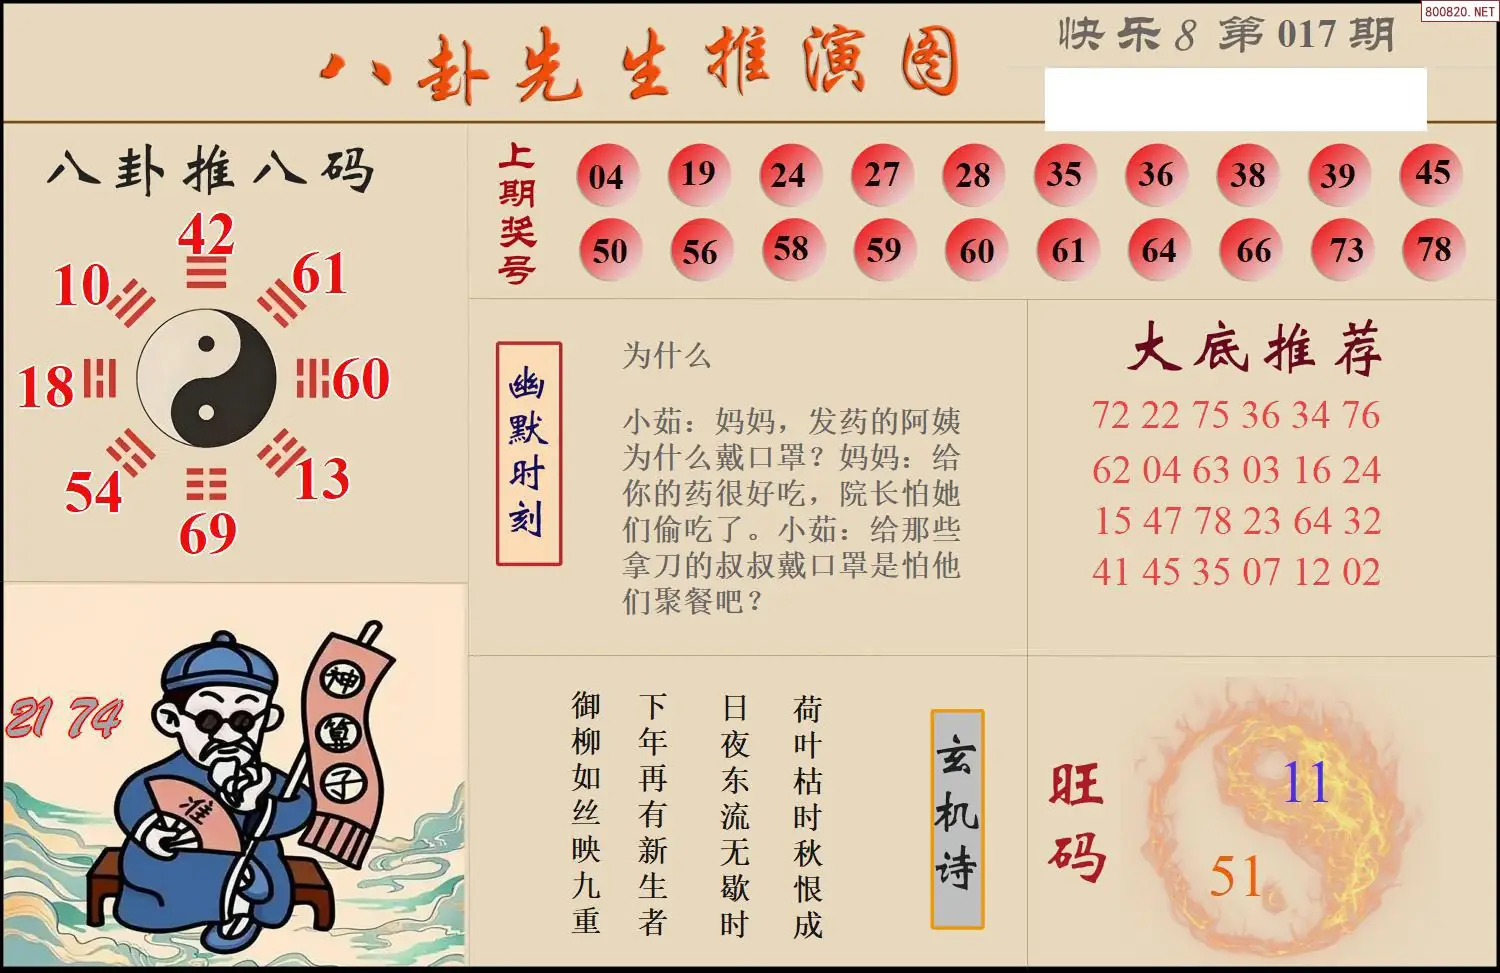 800820.NET
八卦先生推演图
快乐8第017期
八卦推八码
42
10
61
18
60
54
13
69
上期奖号
04 19 24 27 28 35 36 38 39 45
50 56 58 59 60 61 64 66 73 78
幽默时刻
为什么
小茹：妈妈，发药的阿姨
为什么戴口罩？妈妈：给
你的药很好吃，院长怕她
们偷吃了。小茹：给那些
拿刀的叔叔戴口罩是怕他
们聚餐吧？
大底推荐
72 22 75 36 34 76
62 04 63 03 16 24
15 47 78 23 64 32
41 45 35 07 12 02
21 74
神算子
准
玄机诗
荷叶枯时秋恨成
日夜东流无歇时
下年再有新生者
御柳如丝映九重
旺码
11
51